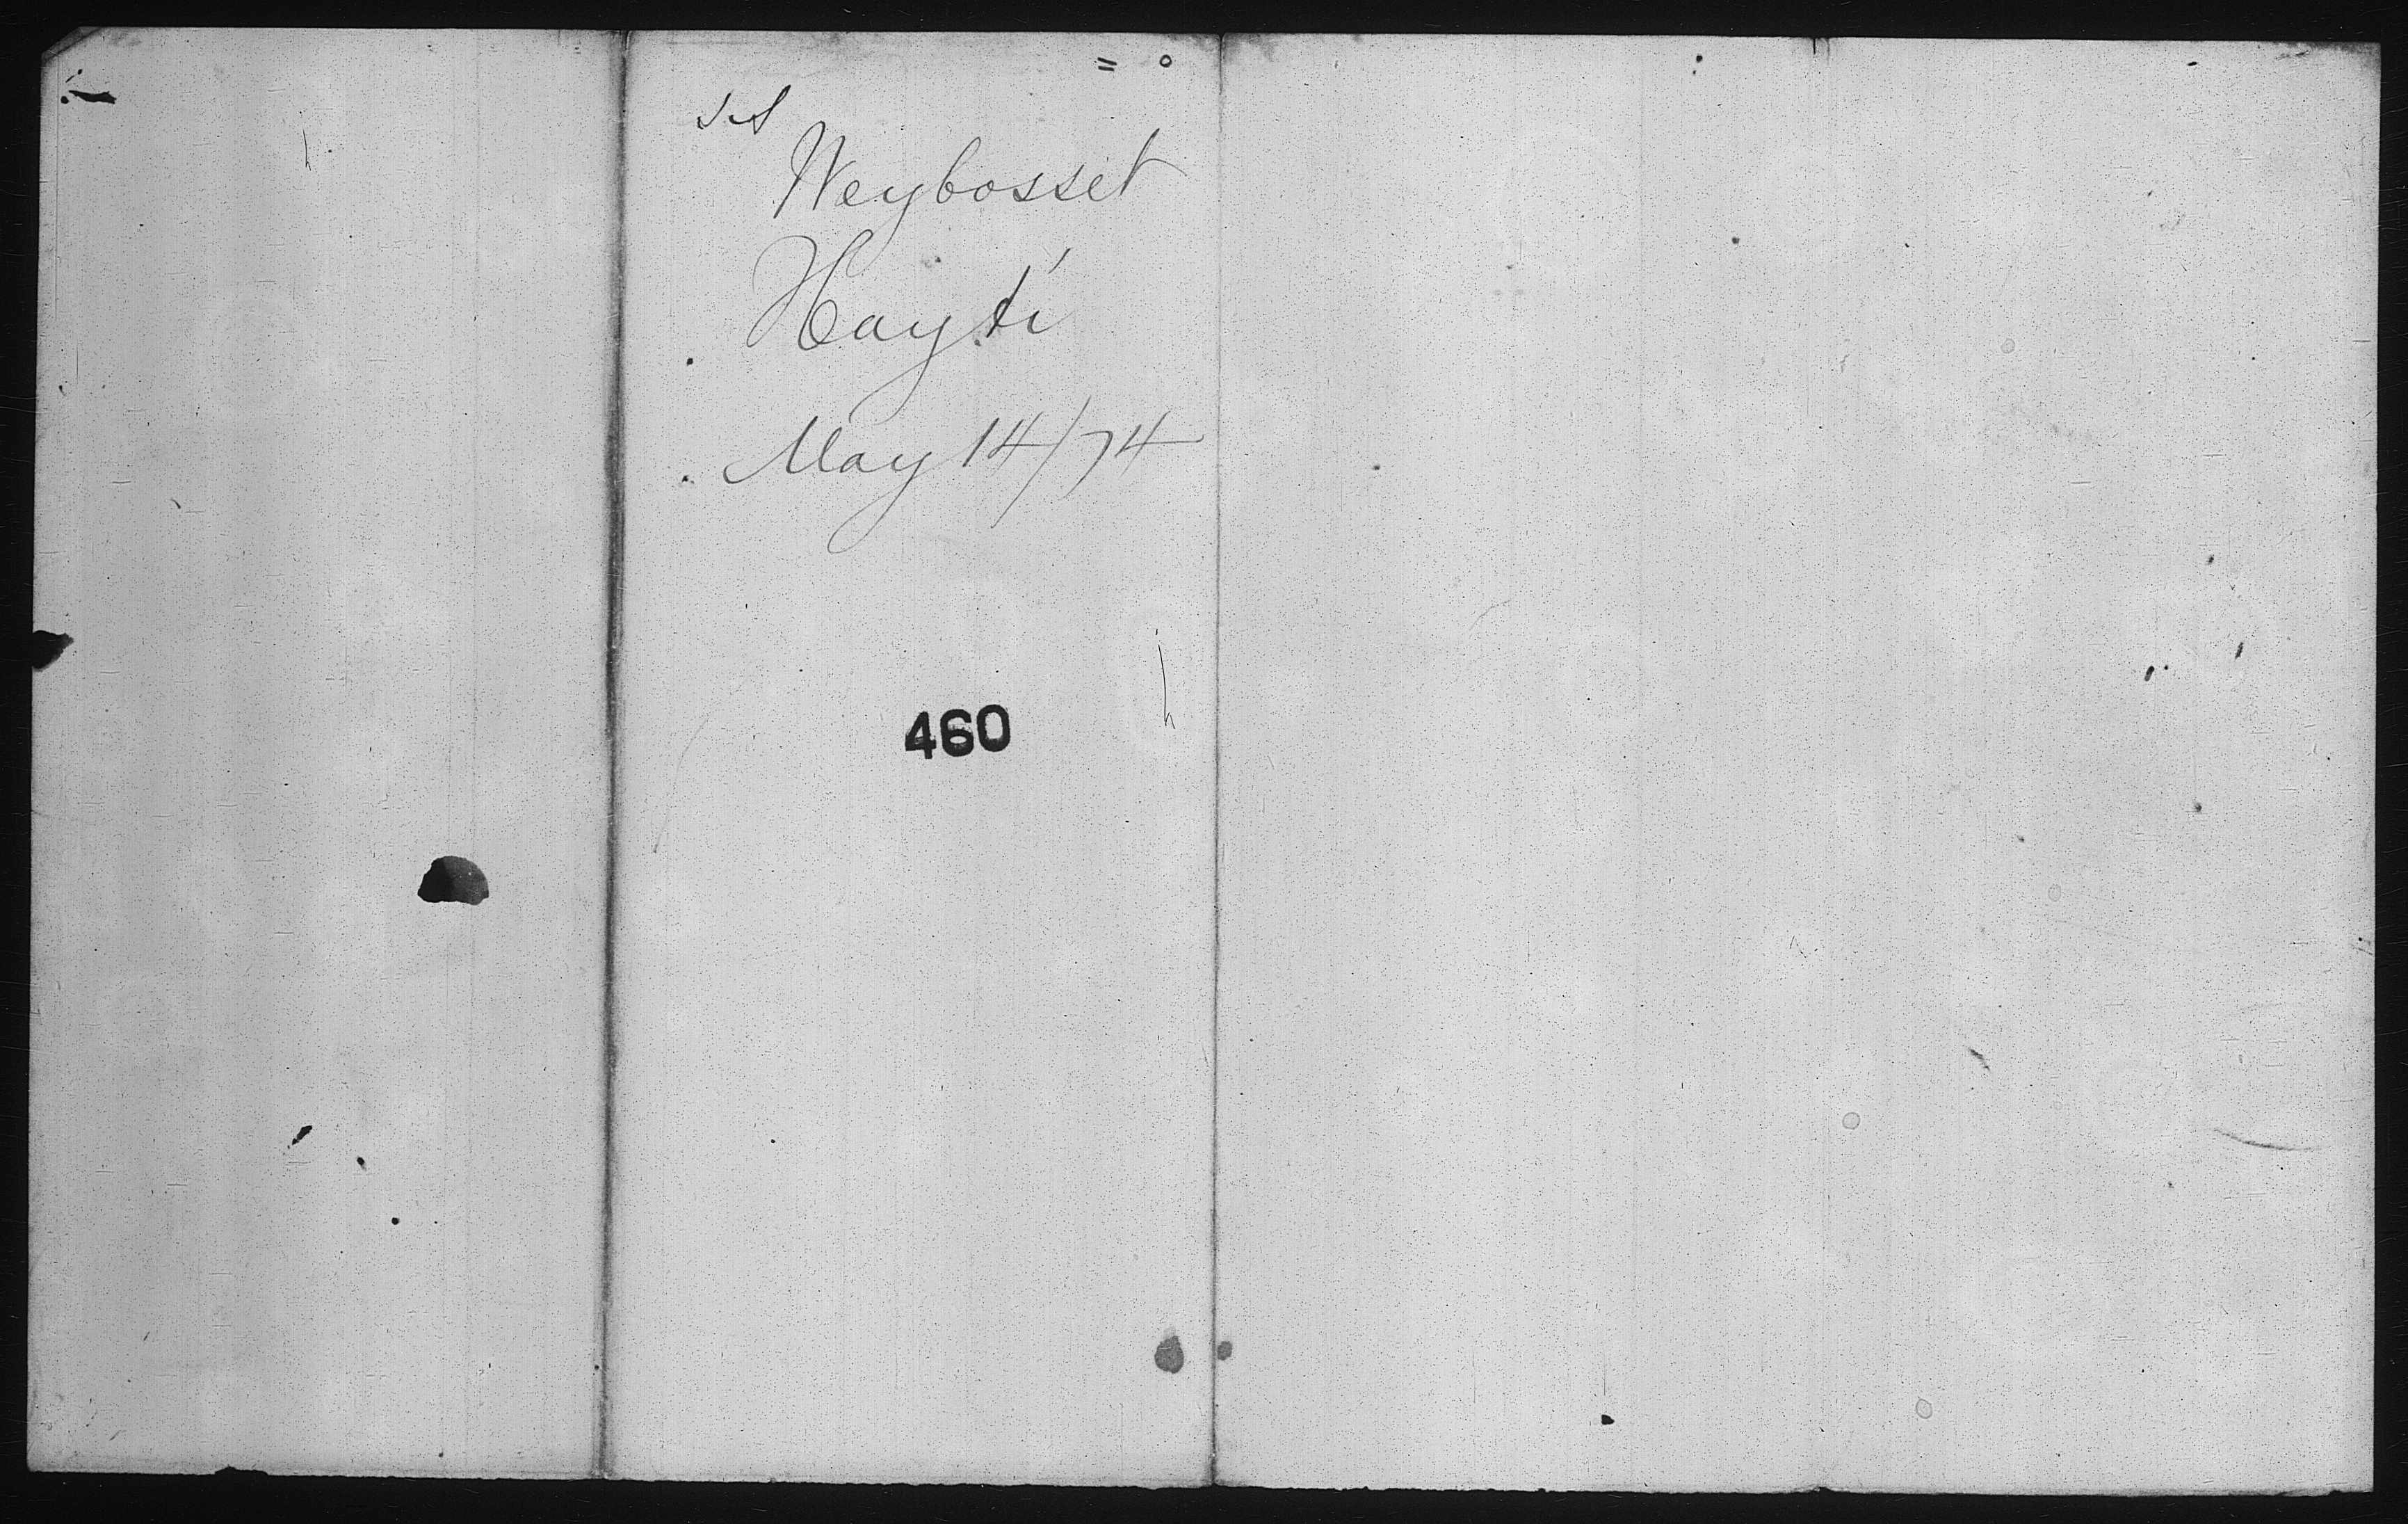 SS
Weybosset
Hayti
May 14/74
460